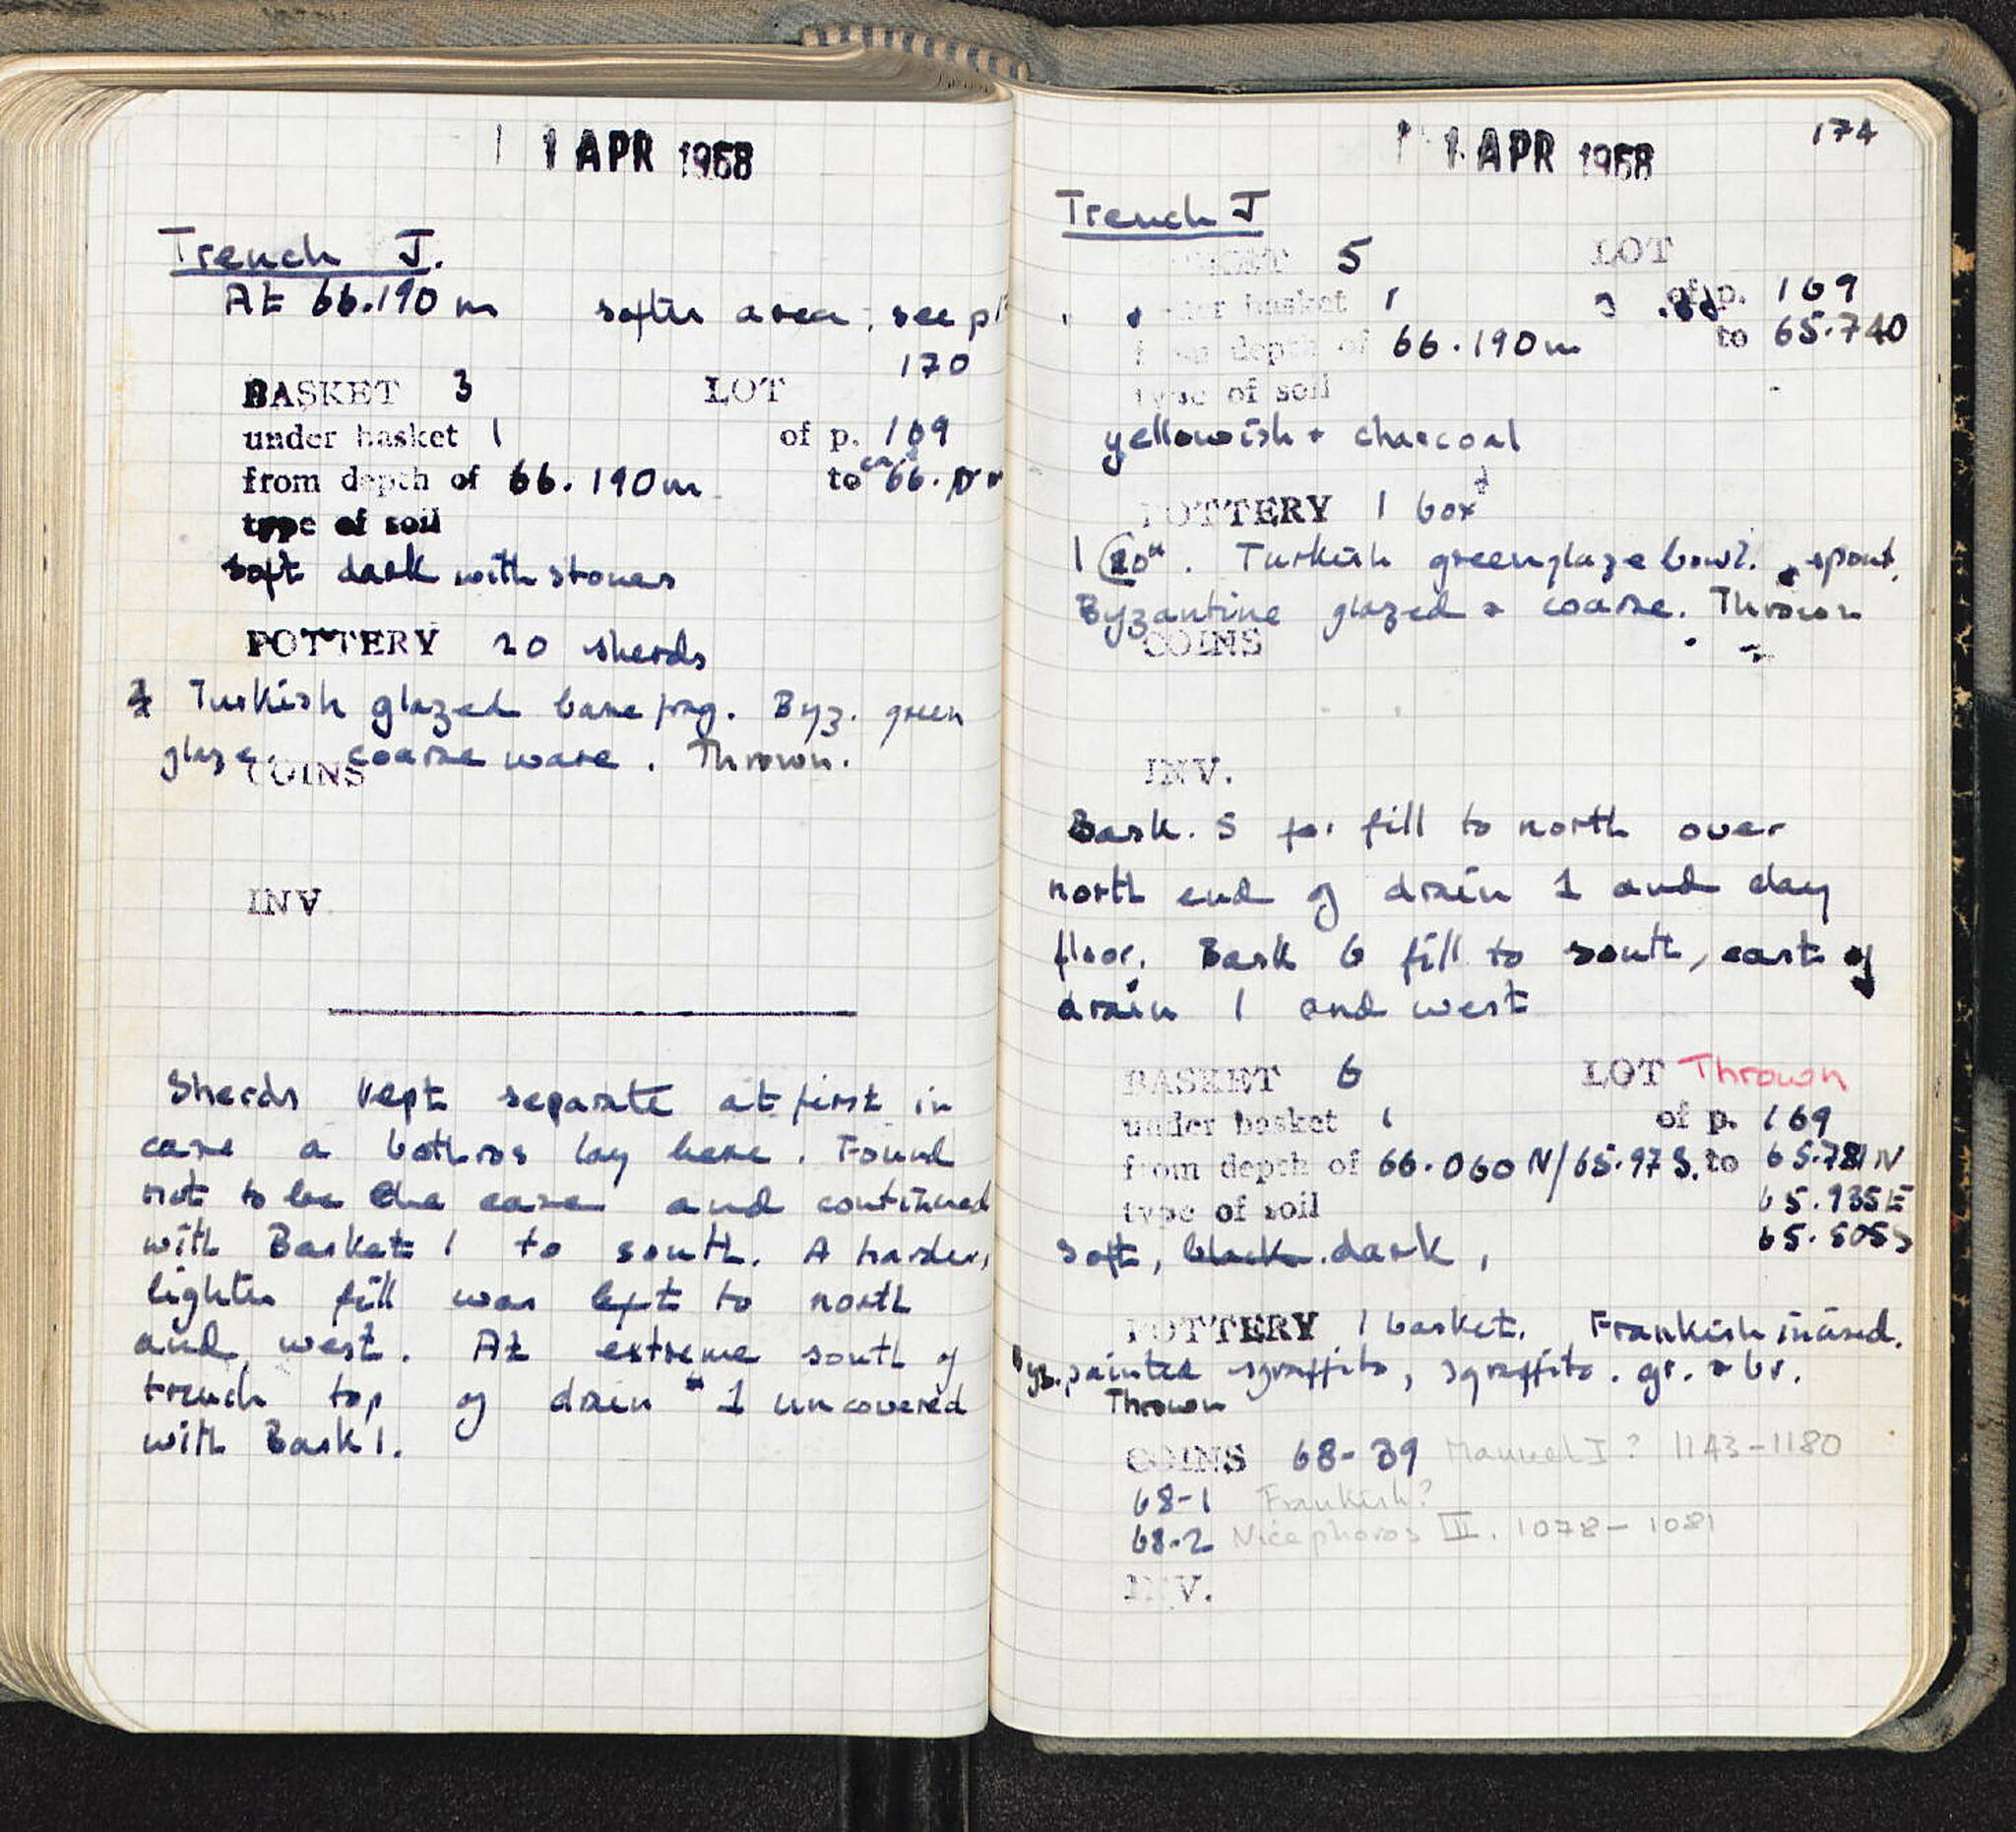 1 1 APR 1968
Trench J.
At 66.190 m softer area, see p
170
BASKET 3 LOT
under basket 1 of p. 169
from depth of 66.190m to ca 66.
type of soil
soft dark with stones
POTTERY 20 sherds
Turkish glazed base frag. Byz. green
glaze, coarse ware. Thrown.
COINS
INV
Sherds kept separate at first in
case a bothros lay here. Found
not to be the case and continued
with Basket 1 to south. A harder,
lighter fill was left to north
and west. At extreme south of
trench top of drain 1 uncovered
with Bask 1.
1 1 APR 1968
174
Trench J
BASKET 5 LOT
under basket 1 of p. 169
from depth of 66.190m to 65.740
type of soil
yellowish + charcoal
POTTERY 1 box
1 Turkish greenglaze bowl. spout,
Byzantine glazed + coarse. Thrown
COINS
INV.
Bask. 5 for fill to north over
north end of drain 1 and clay
floor. Bask 6 fill to south, east of
drain 1 and west
BASKET 6 LOT Thrown
under basket 1 of p. 169
from depth of 66.060 N/65.97 S. to 65.781 N
type of soil 65.935E
soft, black dark, 65.505S
POTTERY 1 basket. Frankish incised.
Byz. painted sgraffito, sgraffito. gr. + br.
Thrown
COINS 68-39 Manuel I? 1143-1180
68-1 Frankish?
68-2 Nicephoros III. 1078-1081
INV.